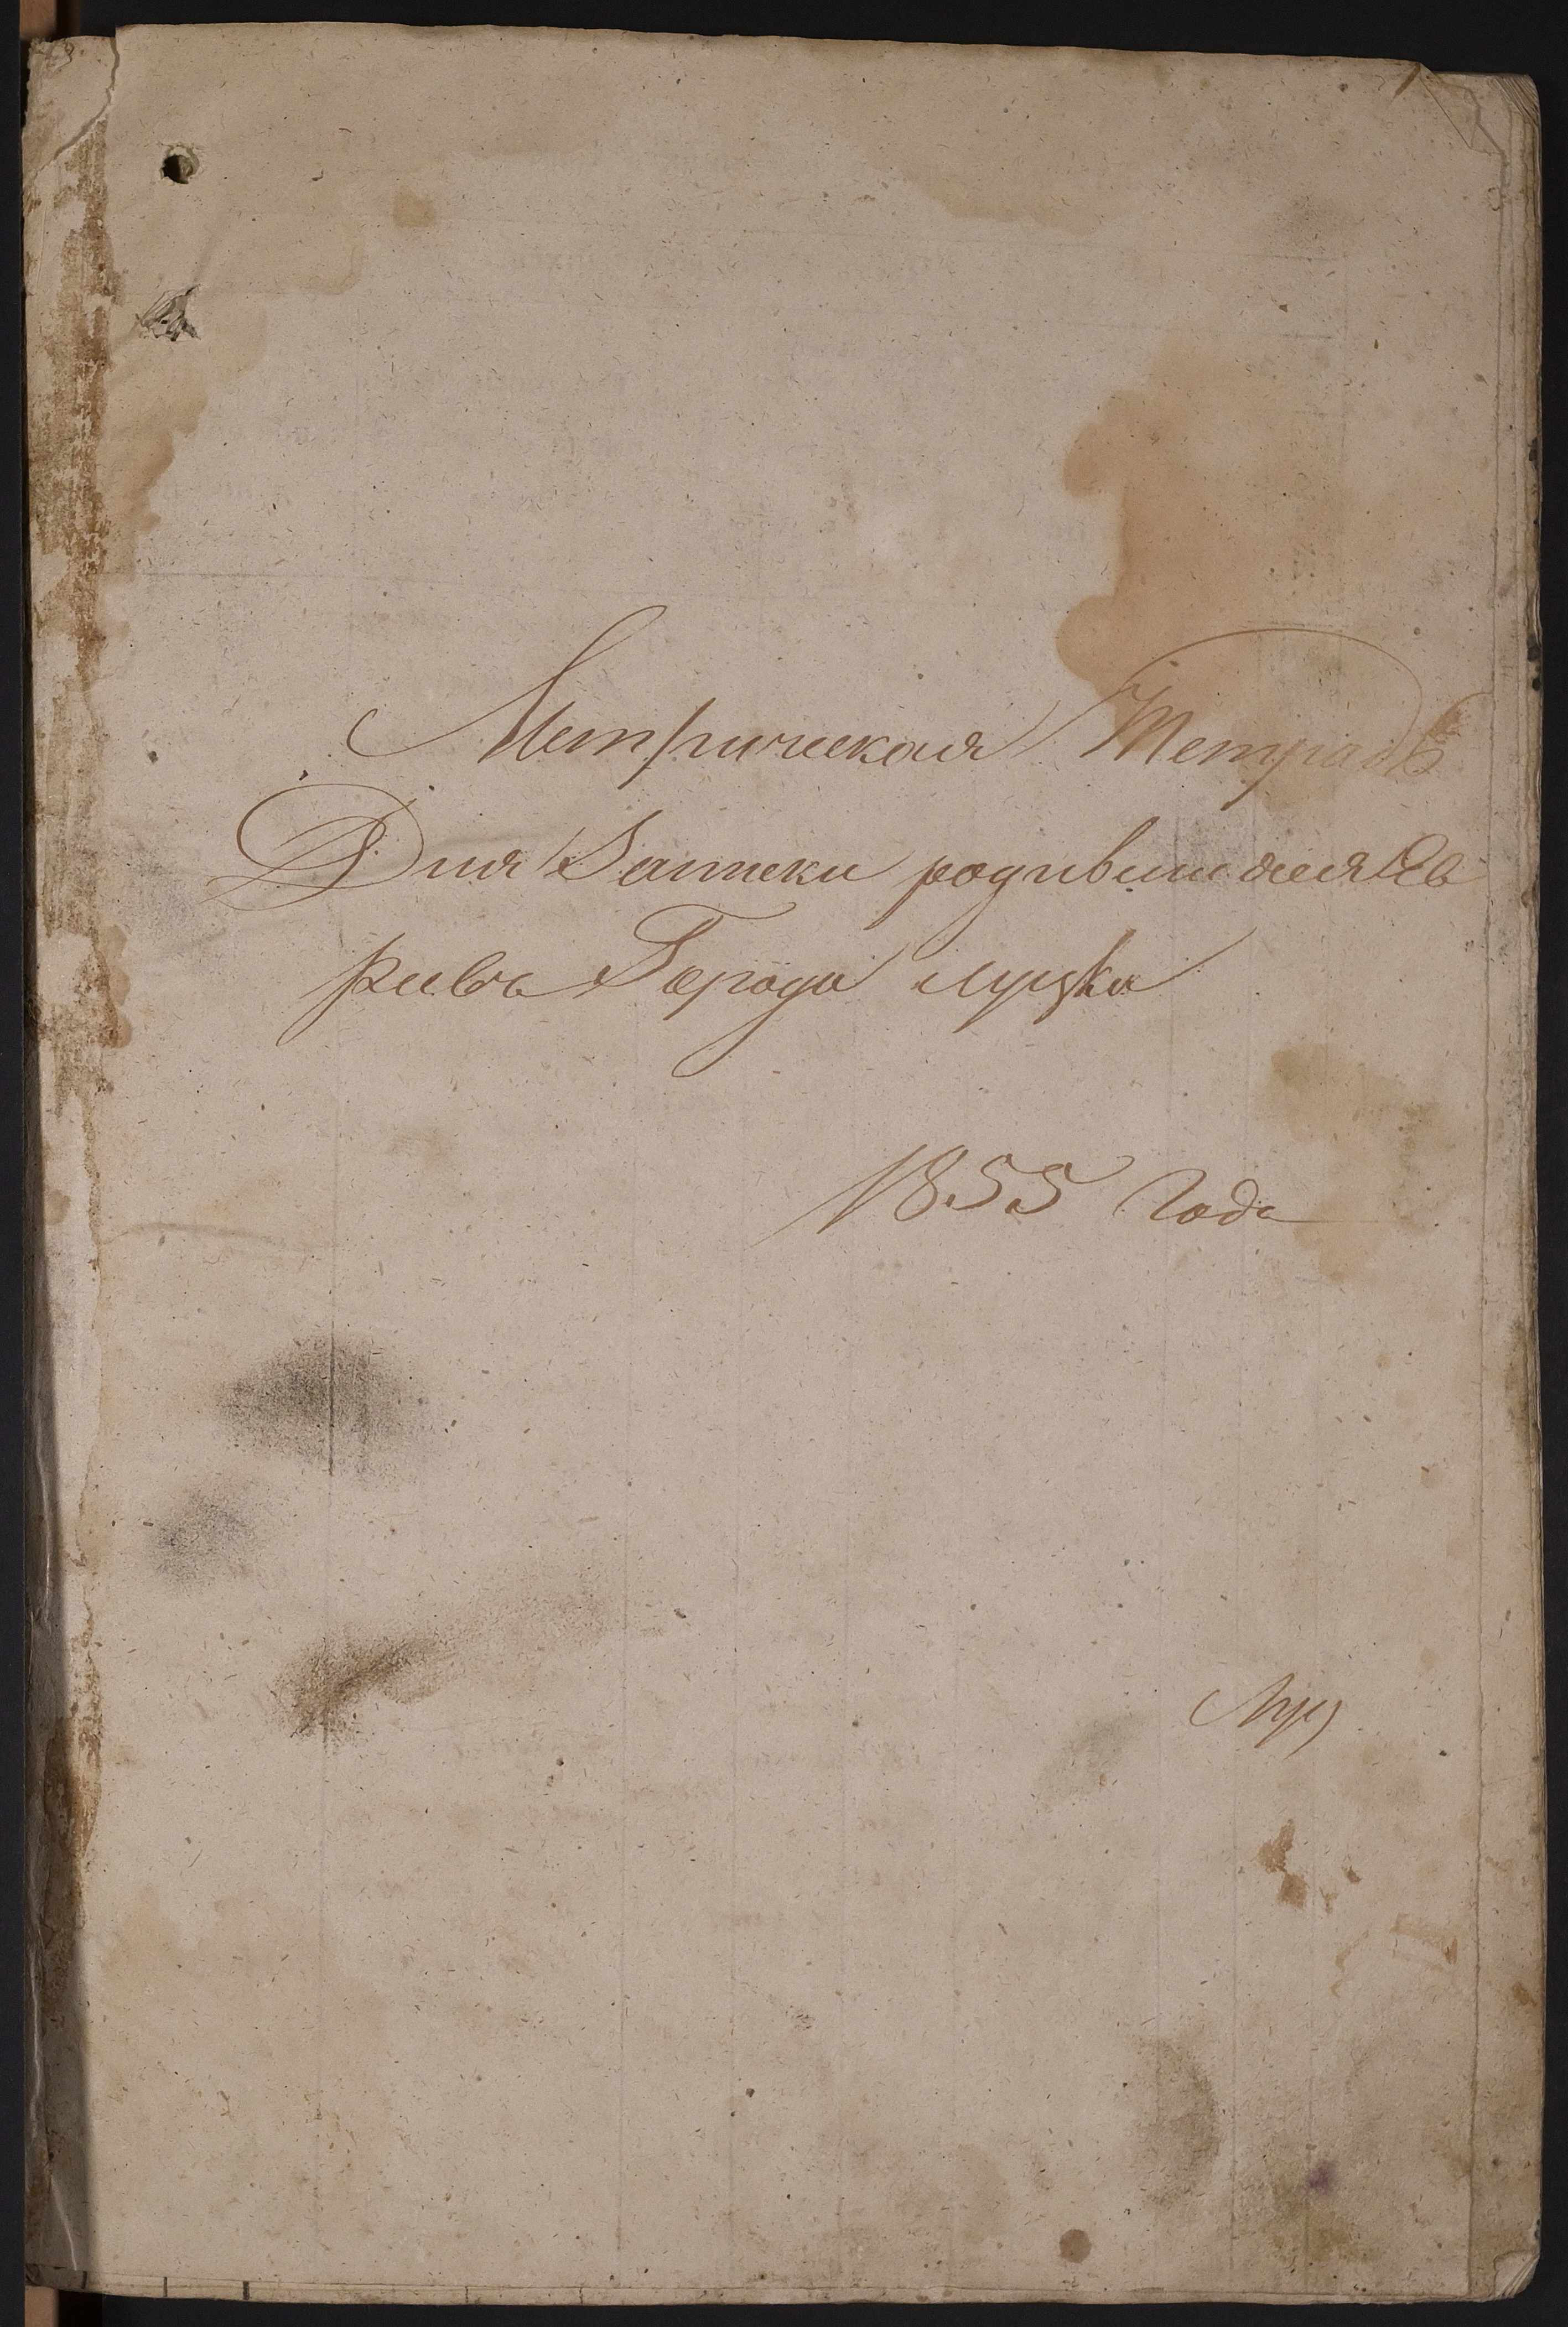 Метрическая Тетрадь
Для Записки родившихся Ев
реевъ Города Луцка
1855 Года
Луц